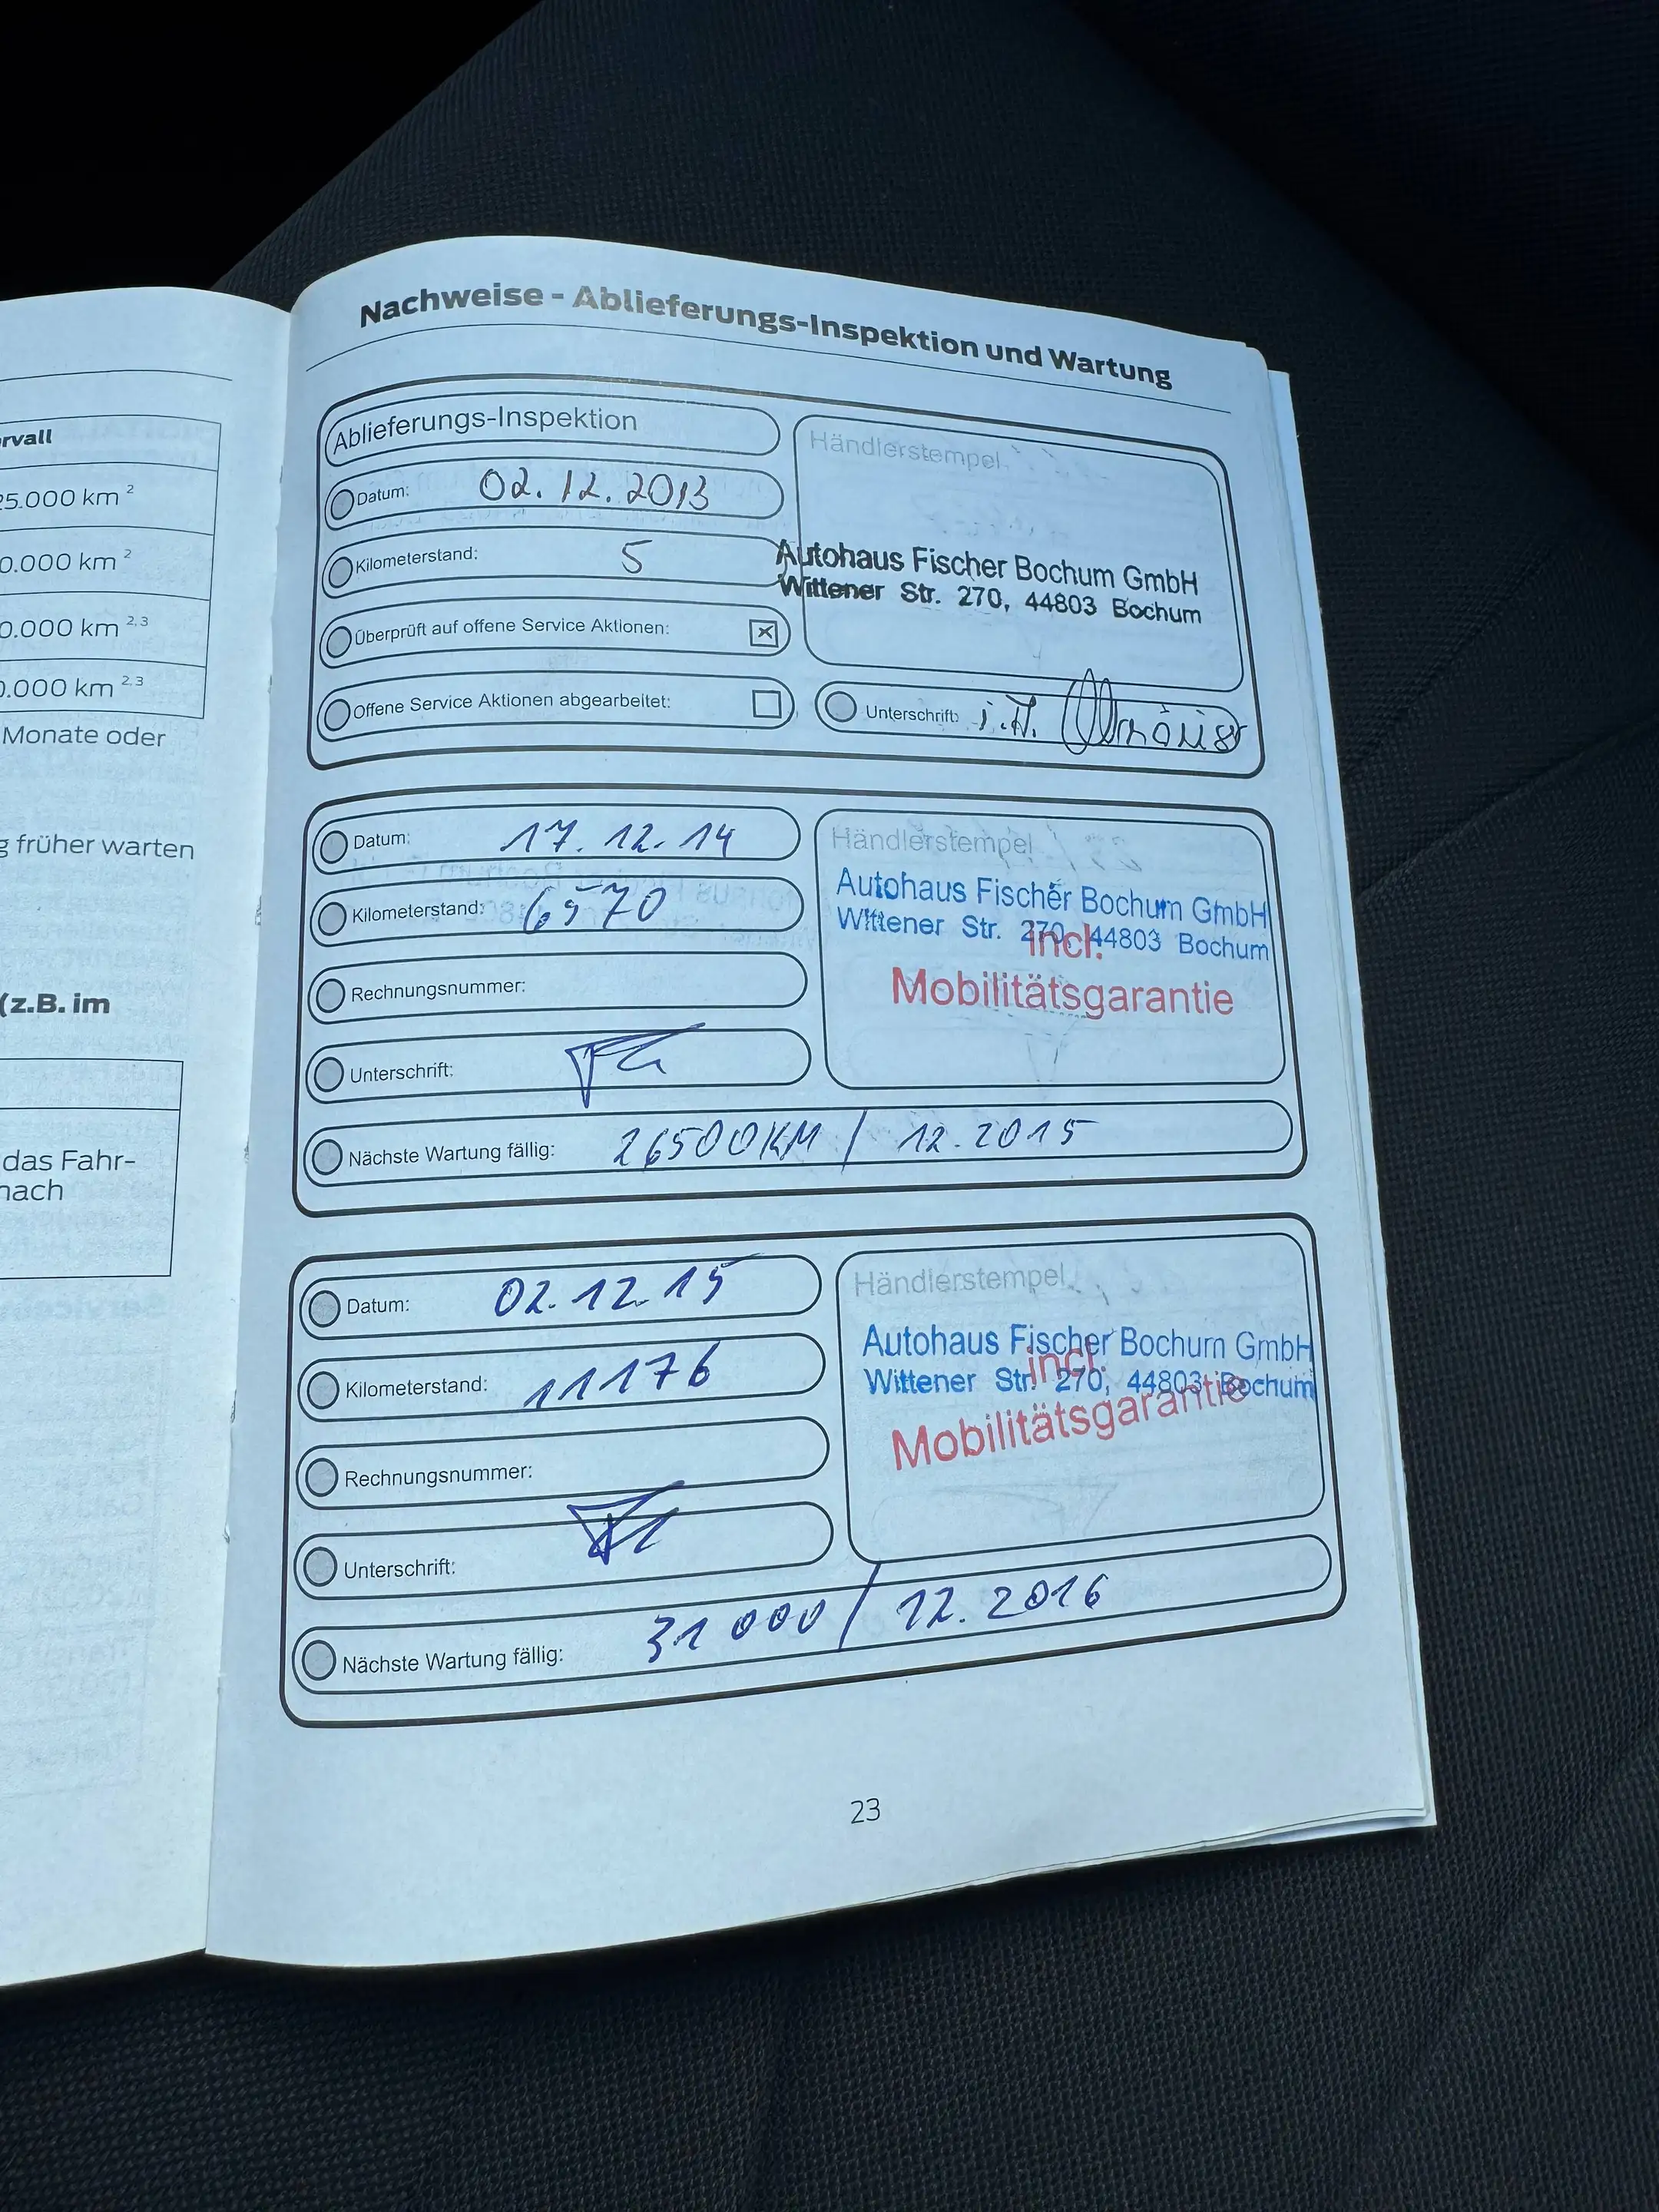 rvall
25.000 km 2
0.000 km 2
0.000 km 2,3
0.000 km 2,3
Monate oder
g früher warten
(z.B. im
das Fahr-
nach
Nachweise - Ablieferungs-Inspektion und Wartung
Ablieferungs-Inspektion
Datum: 02.12.2013
Kilometerstand: 5
Überprüft auf offene Service Aktionen: ☒
Offene Service Aktionen abgearbeitet: ☐
Händlerstempel
Autohaus Fischer Bochum GmbH
Wittener Str. 270, 44803 Bochum
Unterschrift: i.A.
Datum: 17.12.14
Kilometerstand: 6570
Rechnungsnummer:
Unterschrift:
Händlerstempel
Autohaus Fischer Bochum GmbH
Wittener Str. 270, 44803 Bochum
incl.
Mobilitätsgarantie
Nächste Wartung fällig: 26500KM / 12.2015
Datum: 02.12.15
Kilometerstand: 11176
Rechnungsnummer:
Unterschrift:
Händlerstempel
Autohaus Fischer Bochum GmbH
Wittener Str. 270, 44803 Bochum
incl.
Mobilitätsgarantie
Nächste Wartung fällig: 31000 / 12.2016
23